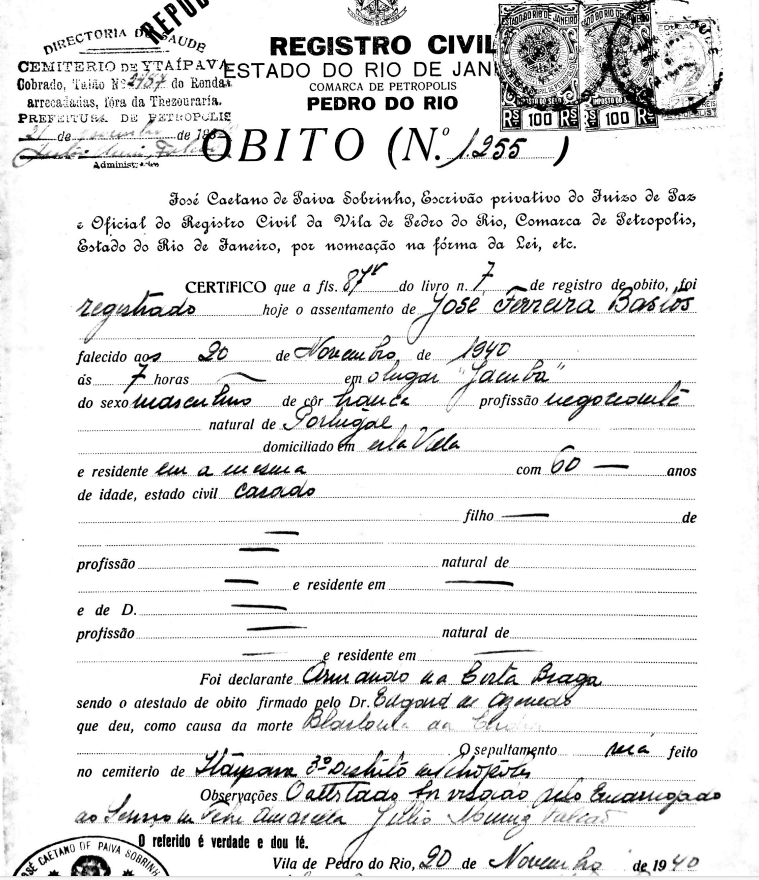 REPUB
DIRECTORIA DE SAUDE
CEMITERIO DE YTAÍPAVA
Cobrado, Talão Nº 2757 do Rendas
arrecadadas, fóra da Thezouraria.
PREFEITURA DE PETROPOLIS
21 de Novembro de 19
Administrador
REGISTRO CIVIL
ESTADO DO RIO DE JAN
COMARCA DE PETROPOLIS
PEDRO DO RIO
ESTADO DO RIO DE JANEIRO
RS 100 RS
RS 100 RS
OBITO (N.º 1.255)
José Caetano de Paiva Sobrinho, Escrivão privativo do Juizo de Paz
e Oficial do Registro Civil da Vila de Pedro do Rio, Comarca de Petropolis,
Estado do Rio de Janeiro, por nomeação na fórma da Lei, etc.
CERTIFICO que a fls. 87v do livro n. 7 de registro de obito, foi
registrado hoje o assentamento de José Ferreira Bastos
falecido aos 20 de Novembro de 1940
ás 7 horas em o lugar "Jacuba"
do sexo masculino de côr branca profissão negociante
natural de Portugal
domiciliado em esta Vila
e residente em a mesma com 60 anos
de idade, estado civil casado
filho de
profissão natural de
e residente em
e de D.
profissão natural de
e residente em
Foi declarante Armando da Costa Braga
sendo o atestado de obito firmado pelo Dr. Edgard de Azevedo
que deu, como causa da morte
O sepultamento será feito
no cemiterio de Itaipava 3º Distrito de Petrópolis
Observações O attestado foi visado pelo Encarregado
do Serviço da Febre Amarela
O referido é verdade e dou fé.
JOSÉ CAETANO DE PAIVA SOBRINH
Vila de Pedro do Rio, 20 de Novembro de 1940